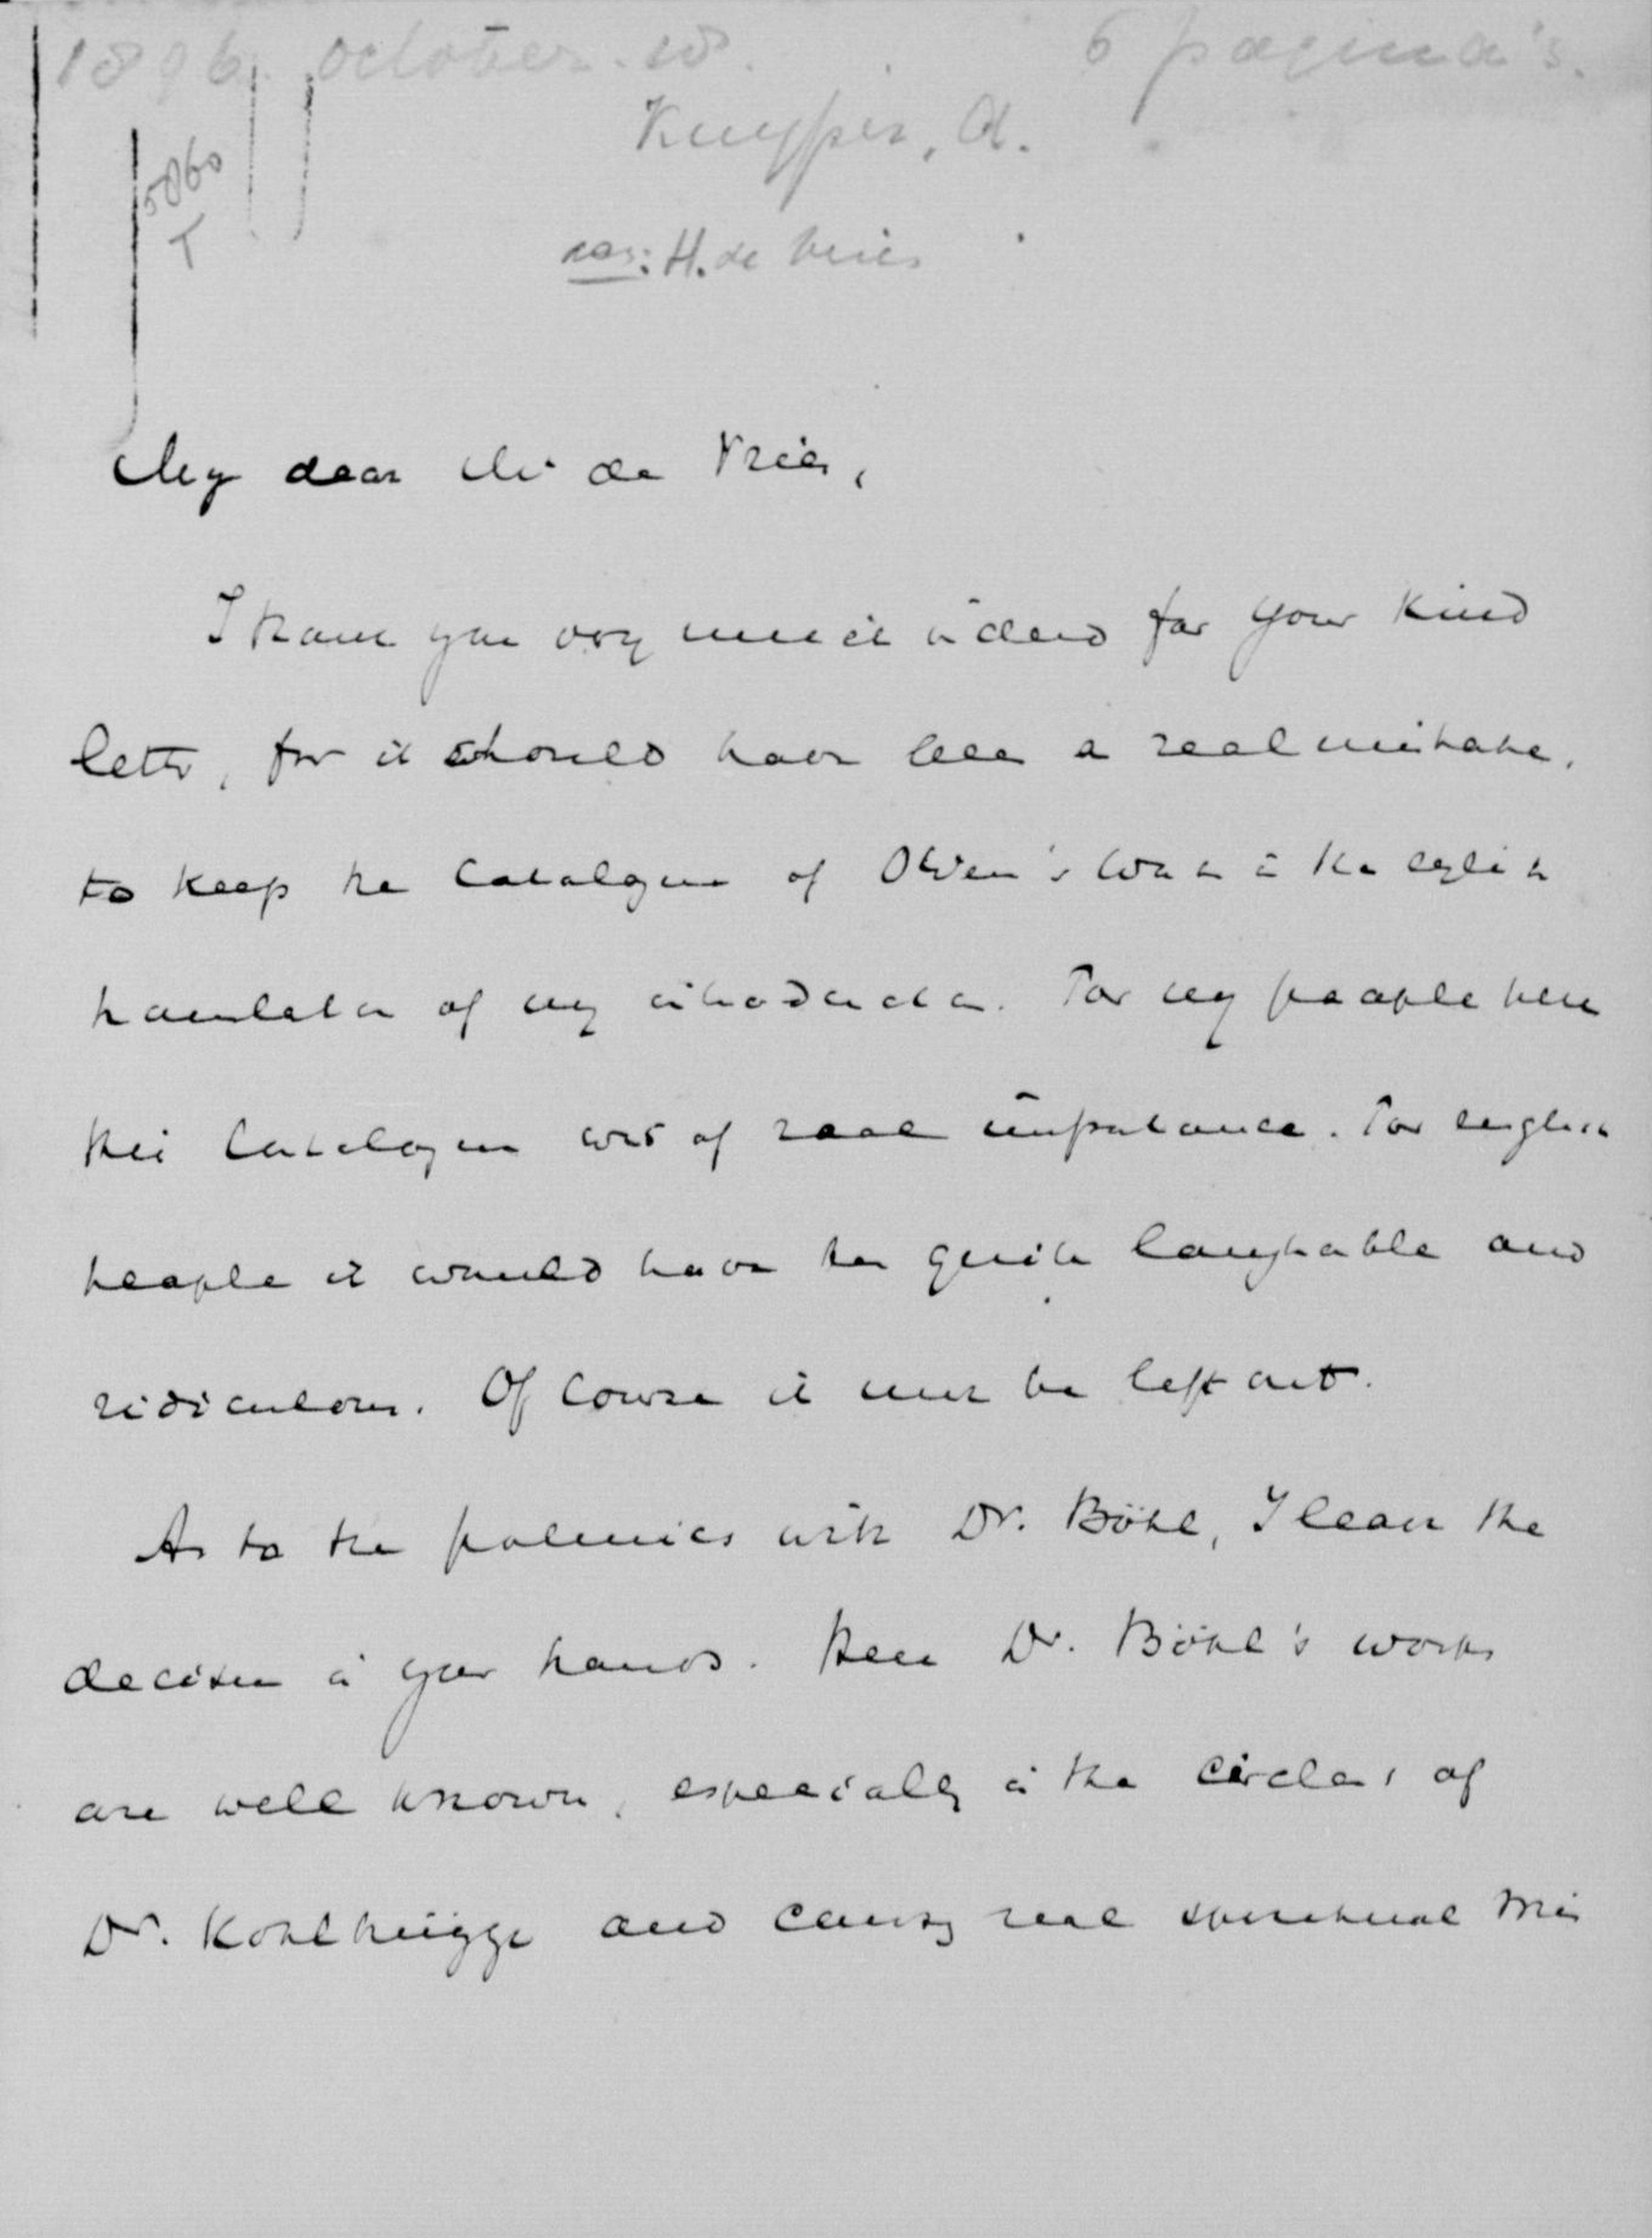 1896. october. 10. 6 pagina's.
Kuyper, A.
5060
T
aan: H. de Vries
My dear Mr de Vries,
I thank you very much indeed for your kind
letter, for it should have been a real mistake,
to keep the Catalogue of Owen's works in the english
translation of my introduction. For my people here
this Catalogue was of real importance. For english
people it would have been quite laughable and
ridiculous. Of course it must be left out.
As to the polemics with Dr. Böhl, I leave the
decision in your hands. Here Dr. Böhl's works
are well known, especially in the circles of
Dr. Kohlbrügge and causing real spiritual mis